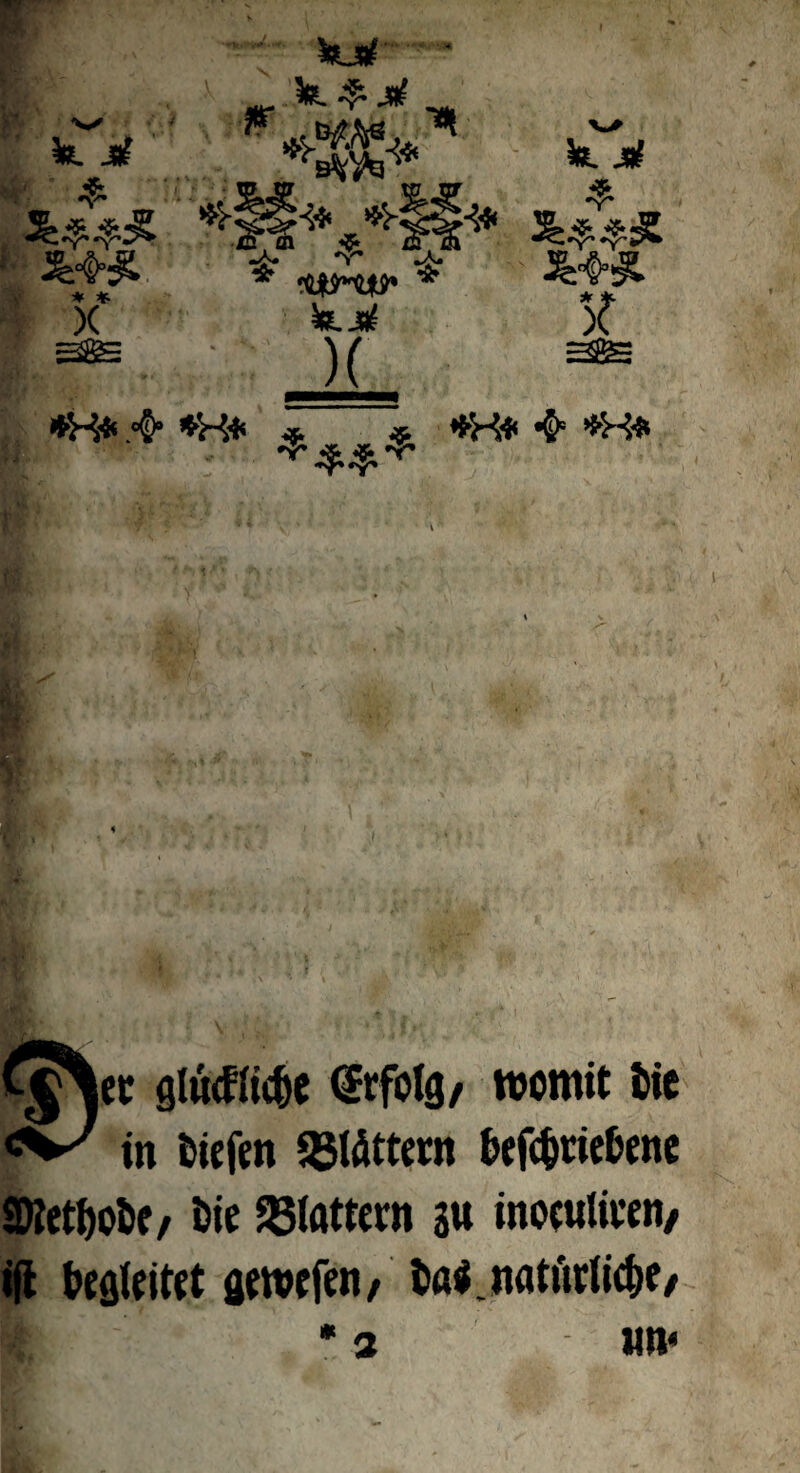 Der glückliche Erfolg/ womit die
in diesen Blättern beschriebene
Methode/ die Blattern zu inoculiren/
ist begleitet gewesen/ das natürliche/
* 2 un-